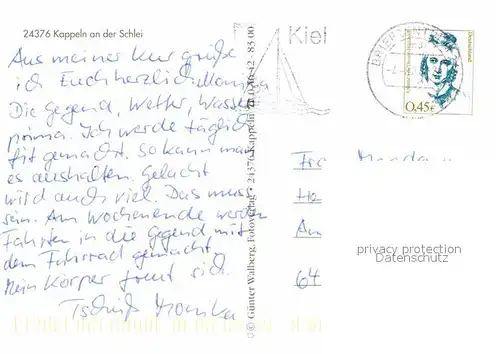 24376 Kappeln an der Schlei
Aus meiner Kur grüße
ich Euch herzlich.
Die Gegend, Wetter, Wasser
prima. Ich werde täglich
fit gemacht. So kann man
es aushalten. Gelacht
wird auch viel. Das muss
sein. Am Wochenende werden
Fahrten in die Gegend mit
dem Fahrrad gemacht.
Mein Körper freut sich.
Tschüß Monika
© Günter Walberg, Fotoverlag • 24376 Kappeln
Kiel
BRIEFZENTRUM
Deutschland
0,45€
Am
64
privacy protection
Datenschutz